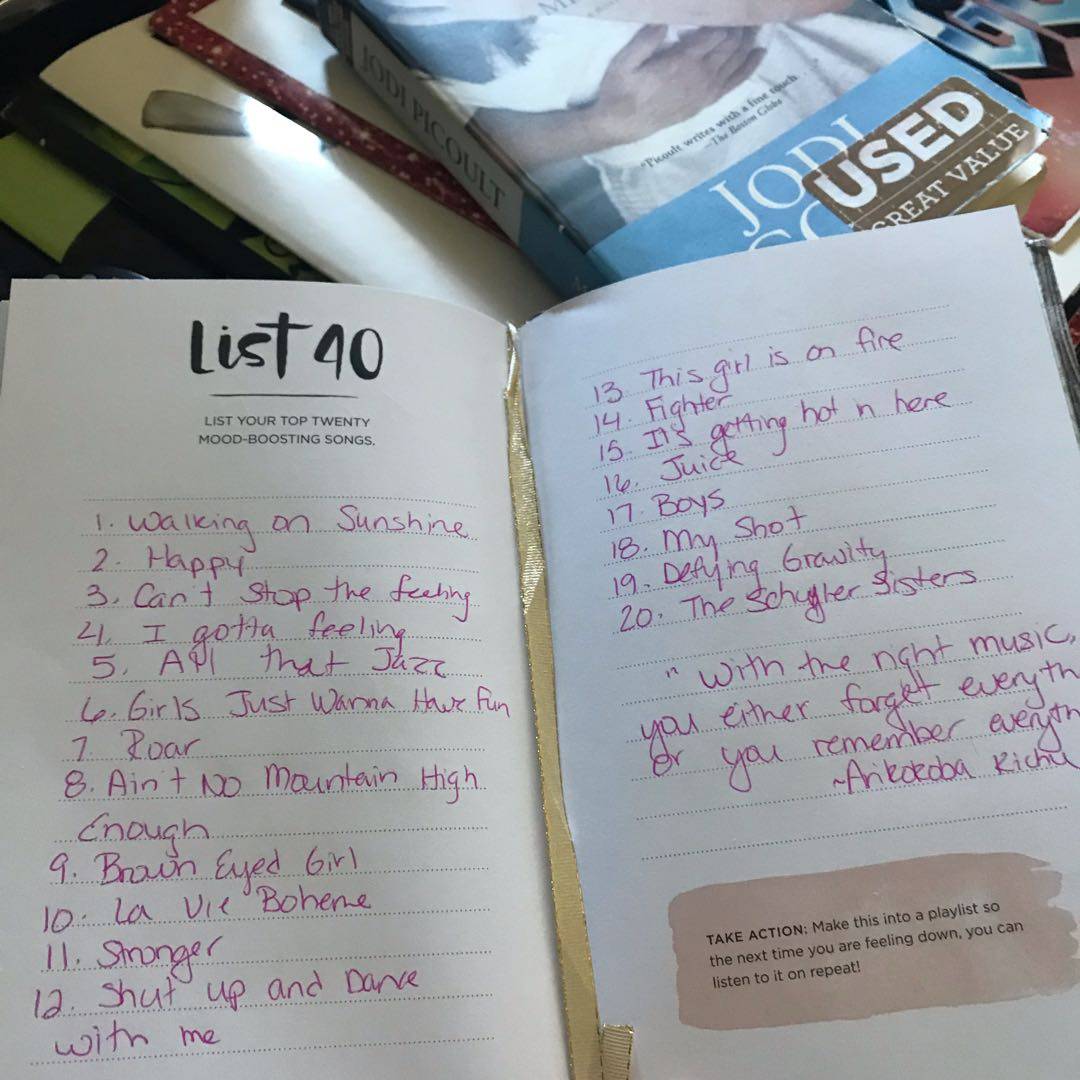 JODI PICOULT
"Picoult writes with a fine touch
—The Boston Globe
JODI
USED
GREAT VALUE
List 40
LIST YOUR TOP TWENTY
MOOD-BOOSTING SONGS.
1. Walking on Sunshine
2. Happy
3. Can't Stop the feeling
4. I gotta feeling
5. All that Jazz
6. Girls Just Wanna Have Fun
7. Roar
8. Ain't No Mountain High
Enough
9. Brown Eyed Girl
10. La Vie Boheme
11. Stronger
12. Shut up and Dance
with me
13. This girl is on fire
14. Fighter
15. It's getting hot n here
16. Juice
17. Boys
18. My Shot
19. Defying Gravity
20. The Schuyler Sisters
" With the right music,
you either forget everyth
or you remember everyth
~Arikokoba Richu
TAKE ACTION: Make this into a playlist so
the next time you are feeling down, you can
listen to it on repeat!